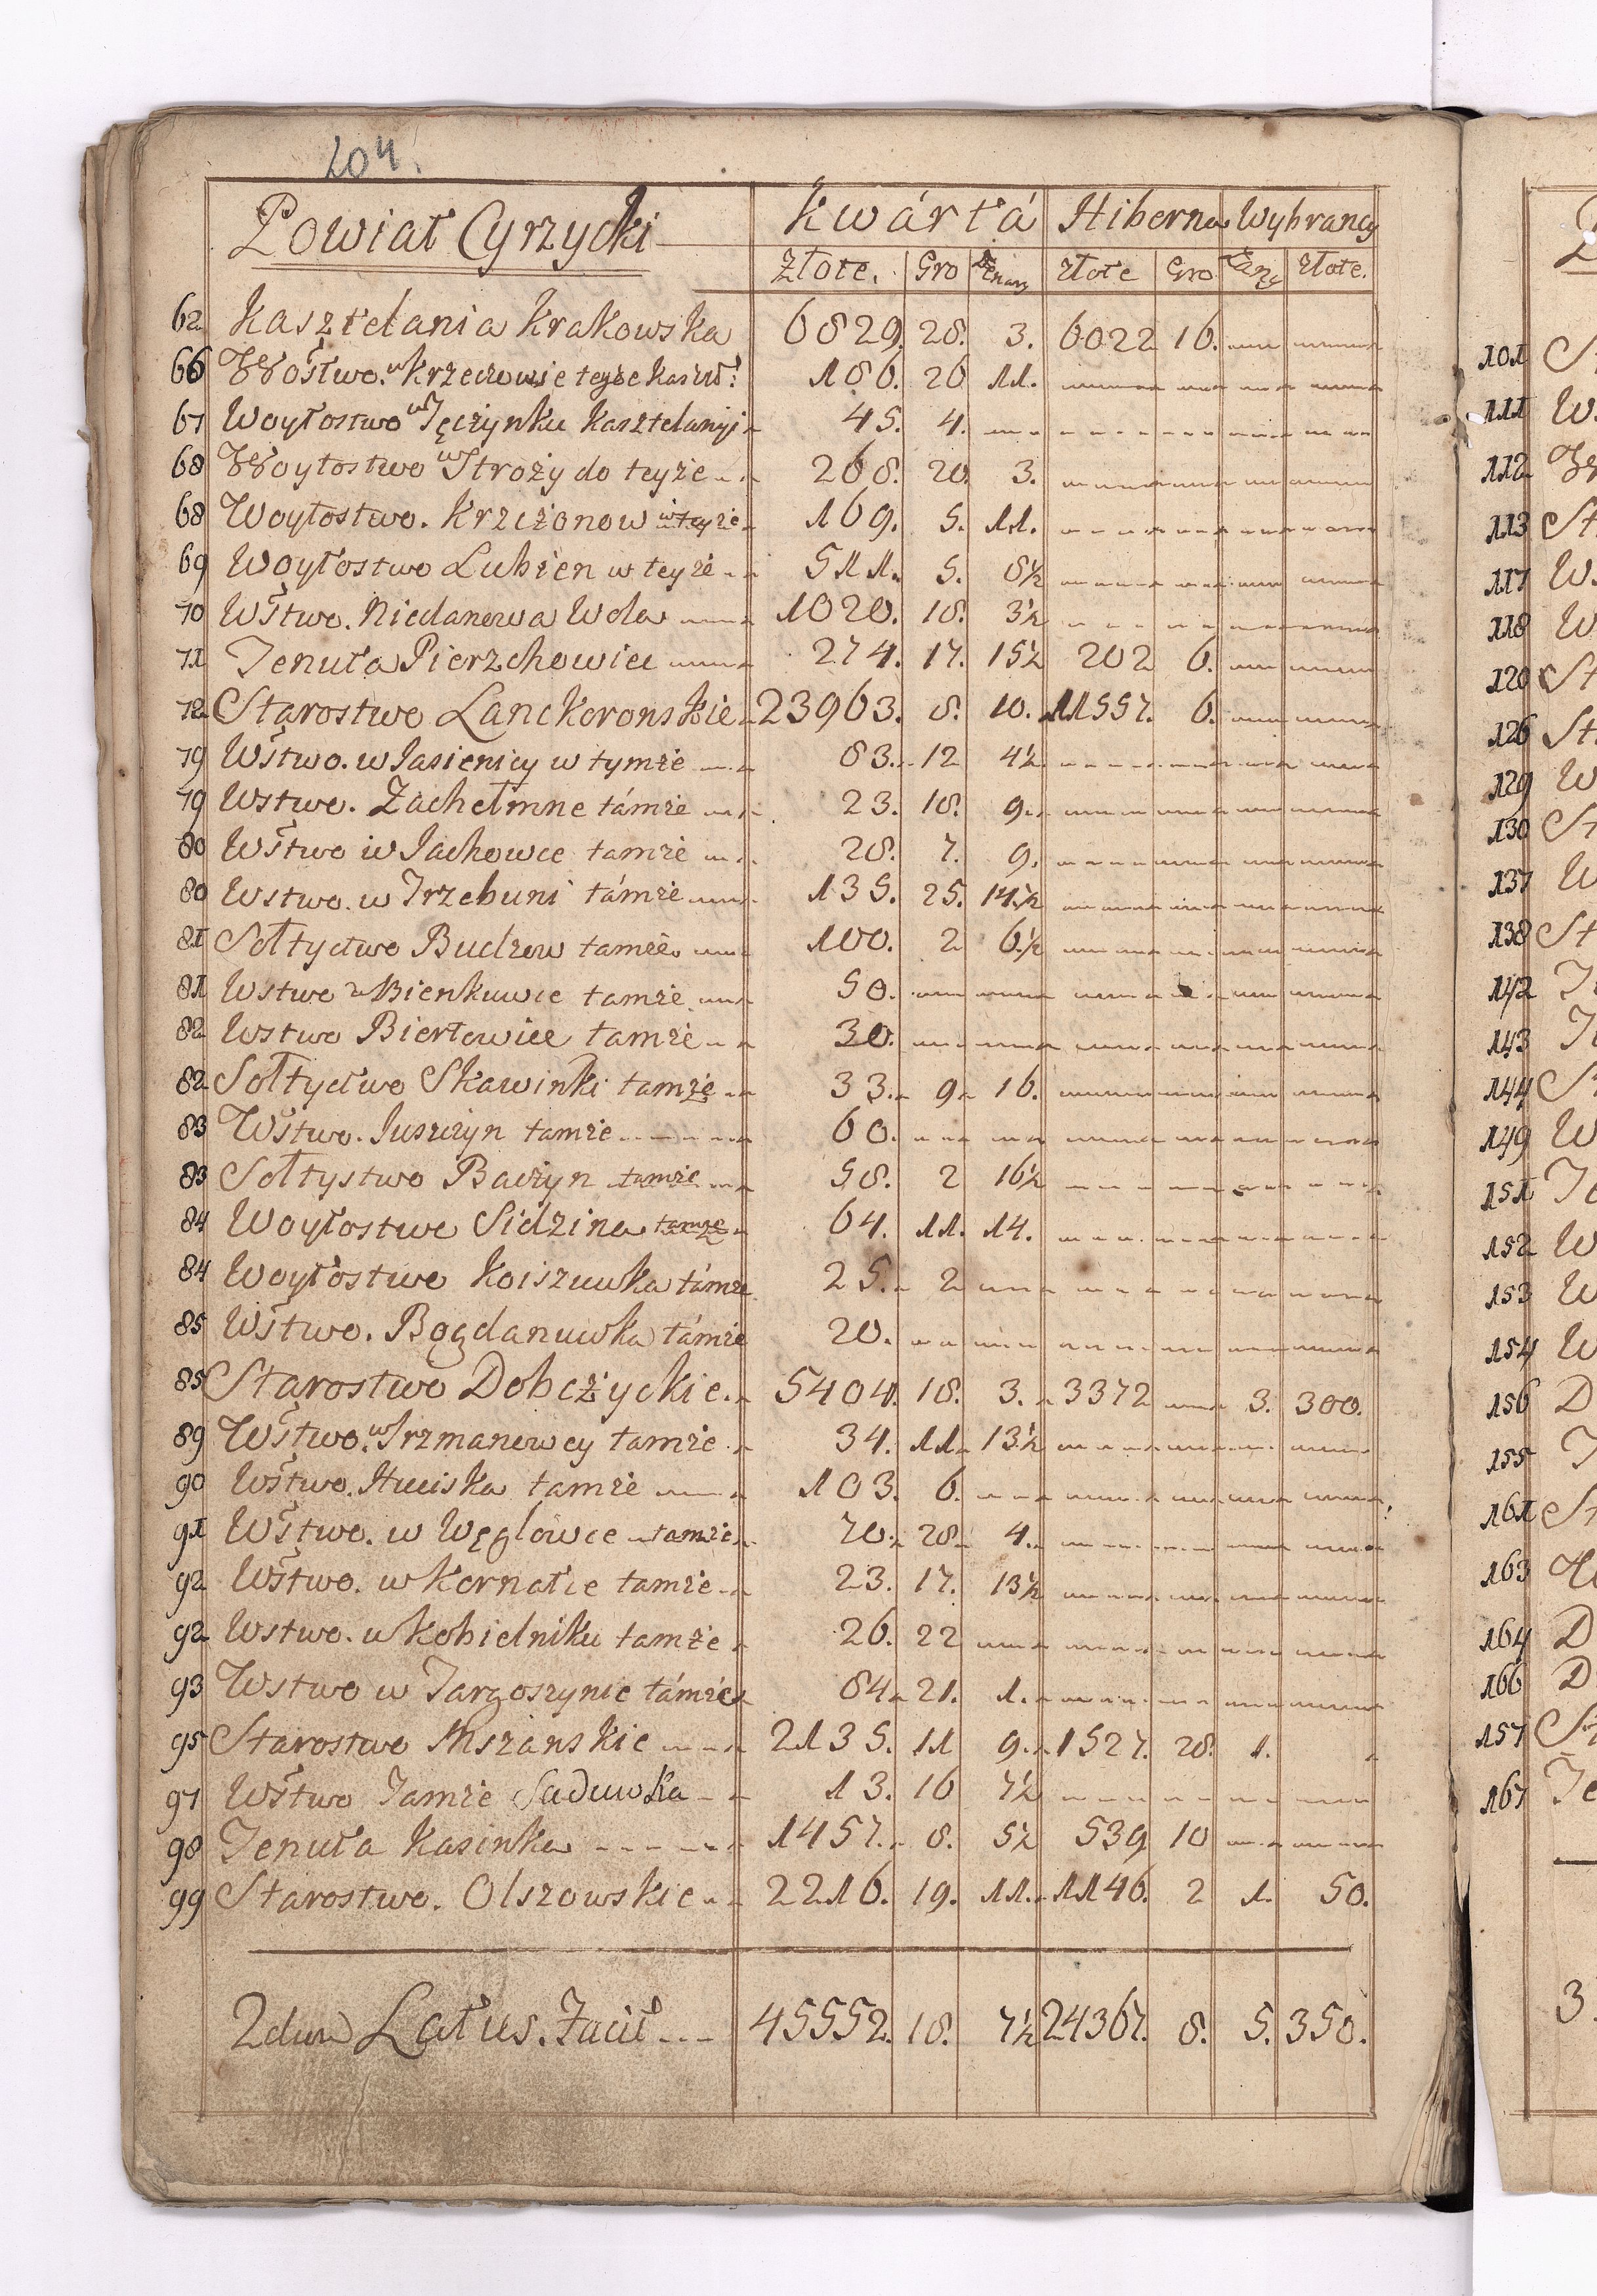 204.
Powiat Cyrzycki Kwárta Hiberna Wybrancy
Złote. Gro Złote Gro Złote.
62 Kasztelania Krakowska 6829. 28. 3. 6022 16.
66 Wostwo. w Krzeczowie teyże 186. 26 11.
67 Woytostwo w Tęczynku Kasztelanyi 45. 4.
68 Woytostwo w Stroży do teyże 268. 20 3.
68 Woytostwo. Krzczonow w teyże 169. 5. 11.
69 Woytostwo Lubien w teyże 511. 5. 8½
70 Wstwo. Niedanowa Wola 1020. 18. 3½
71 Tenuta Pierzchowice 274. 17. 15½ 202 6.
72 Starostwo Lanckoronskie 23963. 8. 10. 11557. 6.
79 Wstwo. w Jasienicy w tymże 83. 12 4½
79 Wstwo. Zachełmne támże 23. 18. 9.
80 Wstwo w Jachowce tamże 28. 7. 9.
80 Wstwo. w Trzebuni támże 135. 25. 14.½
81 Sołtyctwo Budzow tamże 100. 2 6.½
81 Wstwo w Bienkuwce tamże 50.
82 Wstwo Biertowice tamże 30.
82 Sołtyctwo Skawinki tamże 33. 9 16.
83 Wstwo. Juszczyn tamże 60.
83 Sołtystwo Baczyn tamże 58. 2 16½
84 Woytostwo Sidzina tamże 64. 11. 14.
84 Woytostwo Koiszuwka támże 25. 2
85 Wstwo. Bogdanuwka támże 20.
85 Starostwo Dobczyckie. 5404. 18. 3. 3372 3. 300.
89 Wstwo. w Trzmanowcy tamże 34. 11. 13½
90 Wstwo. Huciska tamże 103. 6.
91 Wstwo. w Węglówce tamże 70. 28. 4.
92 Wstwo. w Kornatce tamże 23. 17. 13½
92 Wstwo. w Kobielniku tamże 26. 22
93 Wstwo w Targoszynie támże 84. 21. 1.
95 Starostwo Mszanskie 2135. 11 9. 1527. 28. 1.
97 Wstwo Tamże Saduwka 13. 16 7½
98 Tenuta Kasinka 1457. 8. 5½ 539 10
99 Starostwo. Olszowskie 2216. 19. 11. 1146. 2 1. 50.
Latus. 45552. 18. 7½ 24367. 8. 5. 350.
101
111
112
113
117
118
120
126
129
130
137
138
142
143
144
149
151
152
153
154
156
155
161
163
164
166
157
167